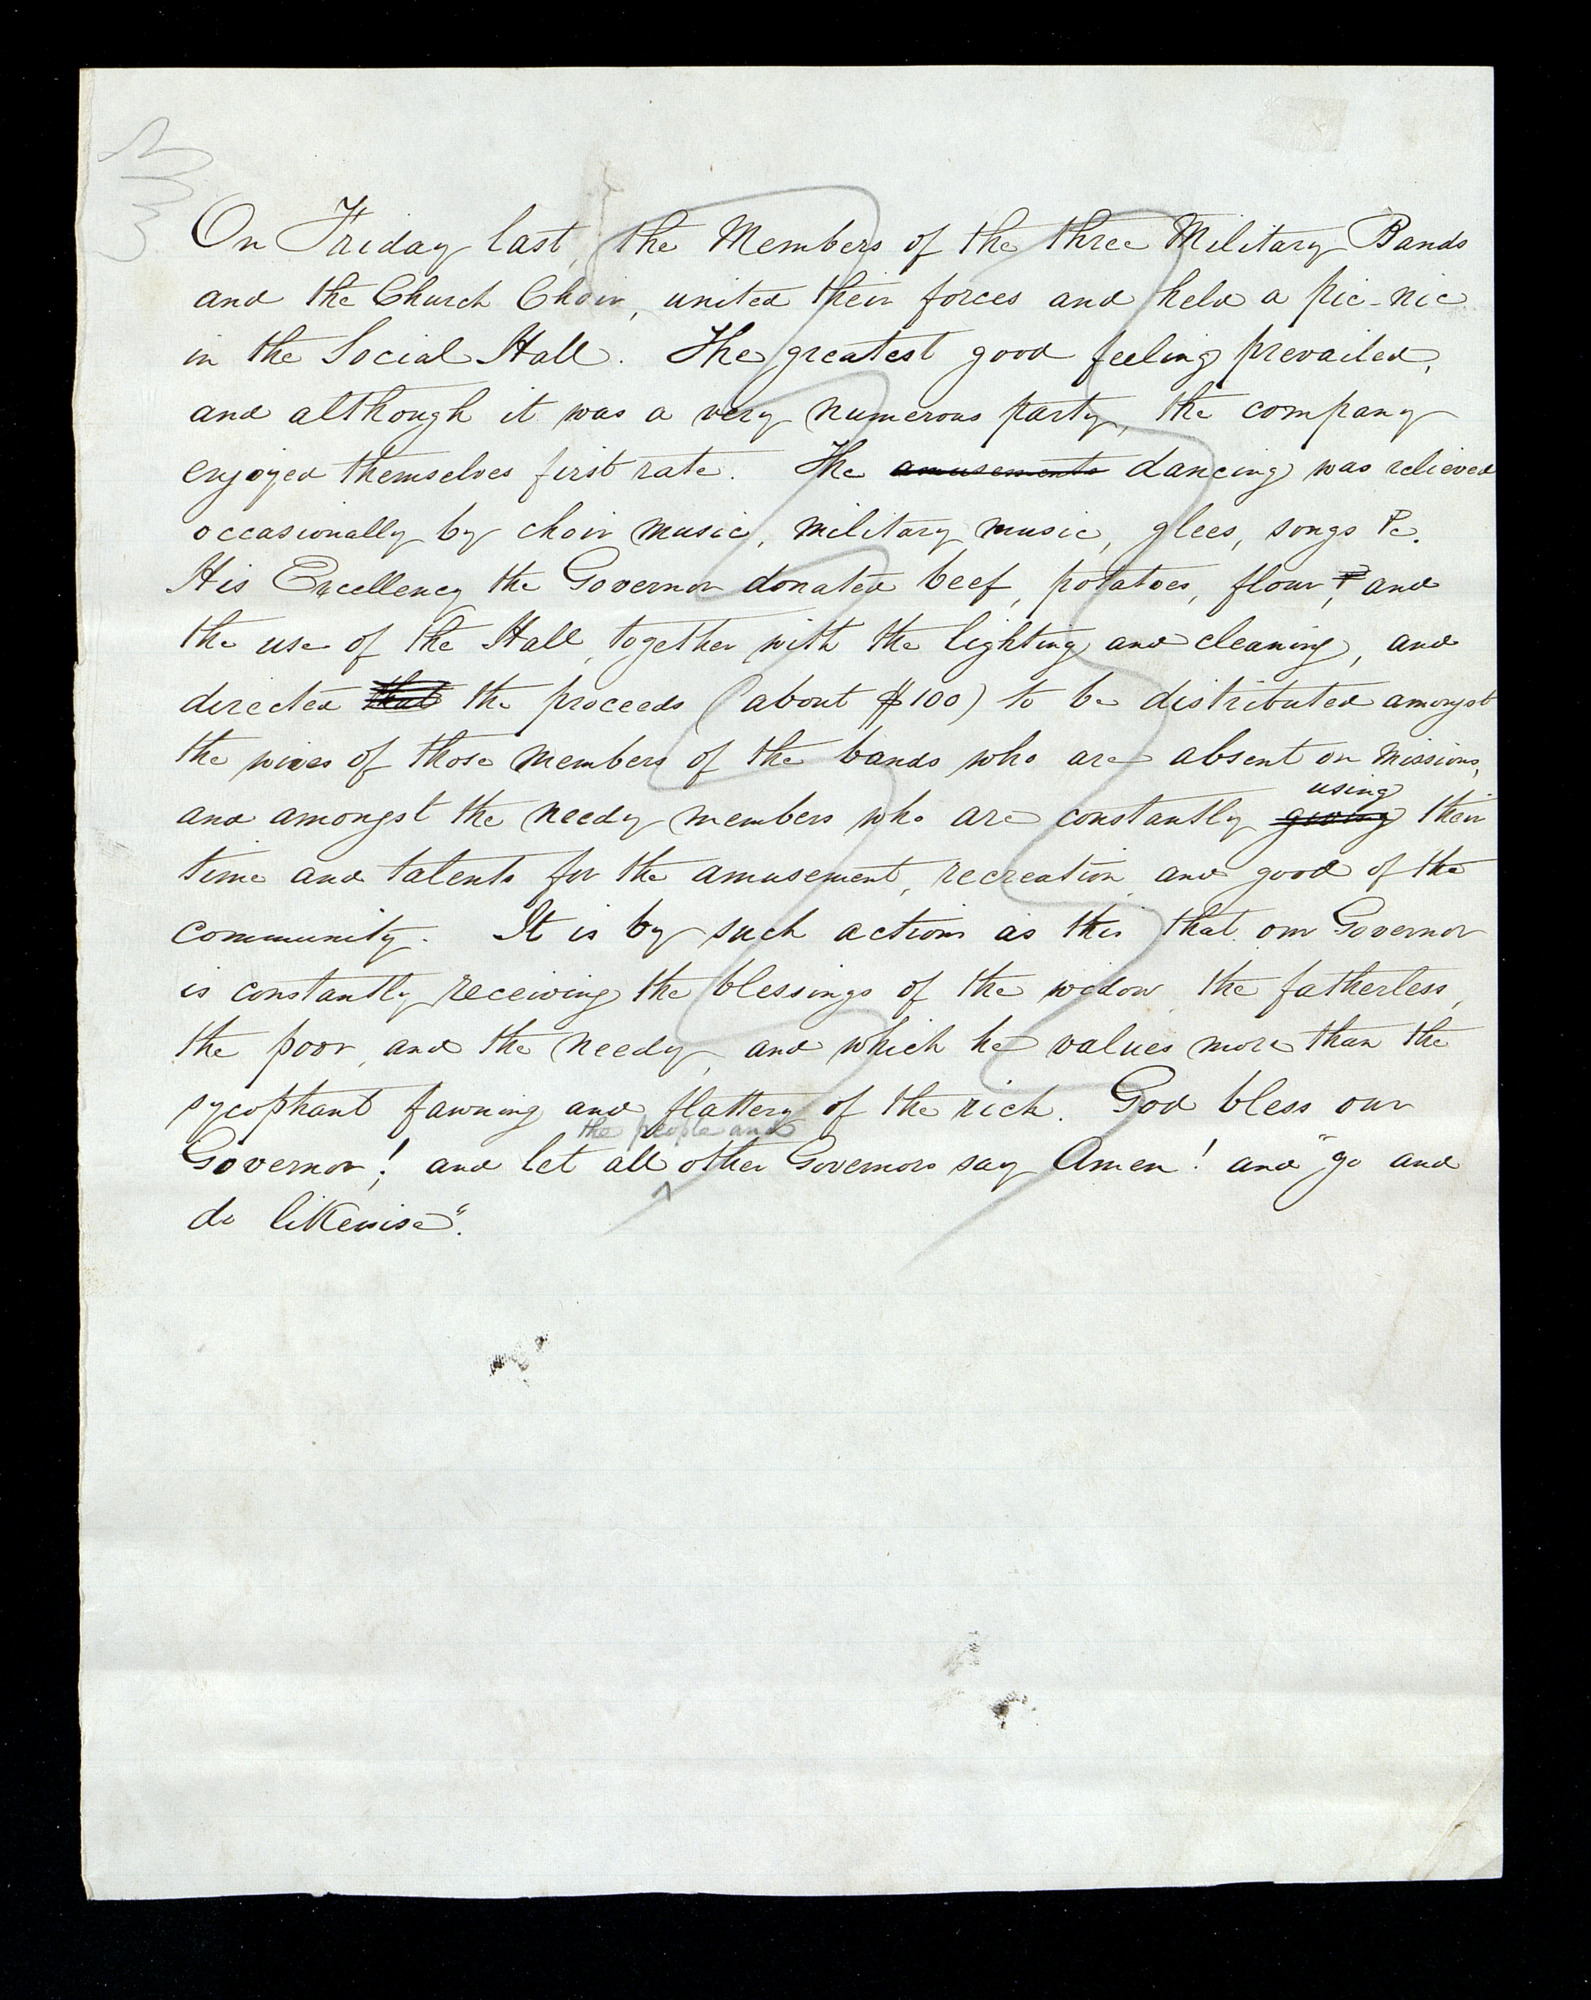 On Friday last, the Members of the three Military Bands
and the Church Choir, united their forces and held a pic-nic
in the Social Hall. The greatest good feeling prevailed,
and although it was a very numerous party, the company
enjoyed themselves first rate. The amusements dancing was relieved
occasionally by choir music, military music, glees, songs &c.
His Excellency the Governor donated beef, potatoes, flour, & and
the use of the Hall, together with the lighting and cleaning, and
directed that the proceeds (about $100) to be distributed amongst
the wives of those members of the bands who are absent on missions,
using
and amongst the needy members who are constantly giving their
time and talents for the amusement, recreation and good of the
community. It is by such actions as this that our Governor
is constantly receiving the blessings of the widow the fatherless,
the poor, and the needy, and which he values more than the
sycophant fawning and flattery of the rich. God bless our
the people and
Governor! and let all other Governors say Amen! and "go and
do likewise".